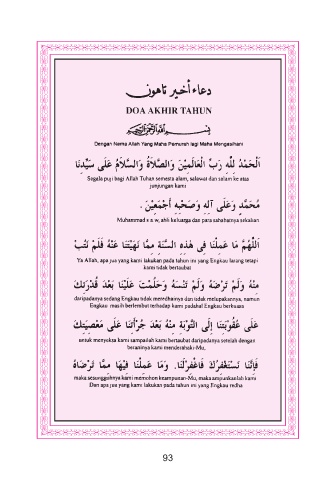 دعاء أخير تاهون
DOA AKHIR TAHUN
بِسْمِ اللهِ الرَّحْمٰنِ الرَّحِيْمِ
Dengan Nama Allah Yang Maha Pemurah lagi Maha Mengasihani
اَلْحَمْدُ لِلّٰهِ رَبِّ الْعَالَمِيْنَ وَالصَّلَاةُ وَالسَّلَامُ عَلَى سَيِّدِنَا
Segala puji bagi Allah Tuhan semesta alam, selawat dan salam ke atas
junjungan kami
مُحَمَّدٍ وَعَلَى آلِهِ وَصَحْبِهِ أَجْمَعِيْنَ .
Muhammad s.a.w, ahli keluarga dan para sahabatnya sekalian
اَللّٰهُمَّ مَا عَمِلْنَا فِي هٰذِهِ السَّنَةِ مِمَّا نَهَيْتَنَا عَنْهُ فَلَمْ نَتُبْ
Ya Allah, apa jua yang kami lakukan pada tahun ini yang Engkau larang tetapi
kami tidak bertaubat
مِنْهُ وَلَمْ تَرْضَهُ وَلَمْ تَنْسَهُ وَحَلِمْتَ عَلَيْنَا بَعْدَ قُدْرَتِكَ
daripadanya sedang Engkau tidak meredhainya dan tidak melupakannya, namun
Engkau masih berlembut terhadap kami padahal Engkau berkuasa
عَلَى عُقُوْبَتِنَا إِلَى التَّوْبَةِ مِنْهُ بَعْدَ جُرْأَتِنَا عَلَى مَعْصِيَتِكَ
untuk menyeksa kami sampailah kami bertaubat daripadanya setelah dengan
berani kami menderhakai-Mu,
فَإِنَّنَا نَسْتَغْفِرُكَ فَاغْفِرْلَنَا. وَمَا عَمِلْنَا فِيْهَا مِمَّا تَرْضَاهُ
maka sesungguhnya kami memohon keampunan-Mu, maka ampunkanlah kami
Dan apa jua yang kami lakukan pada tahun ini yang Engkau redha
93